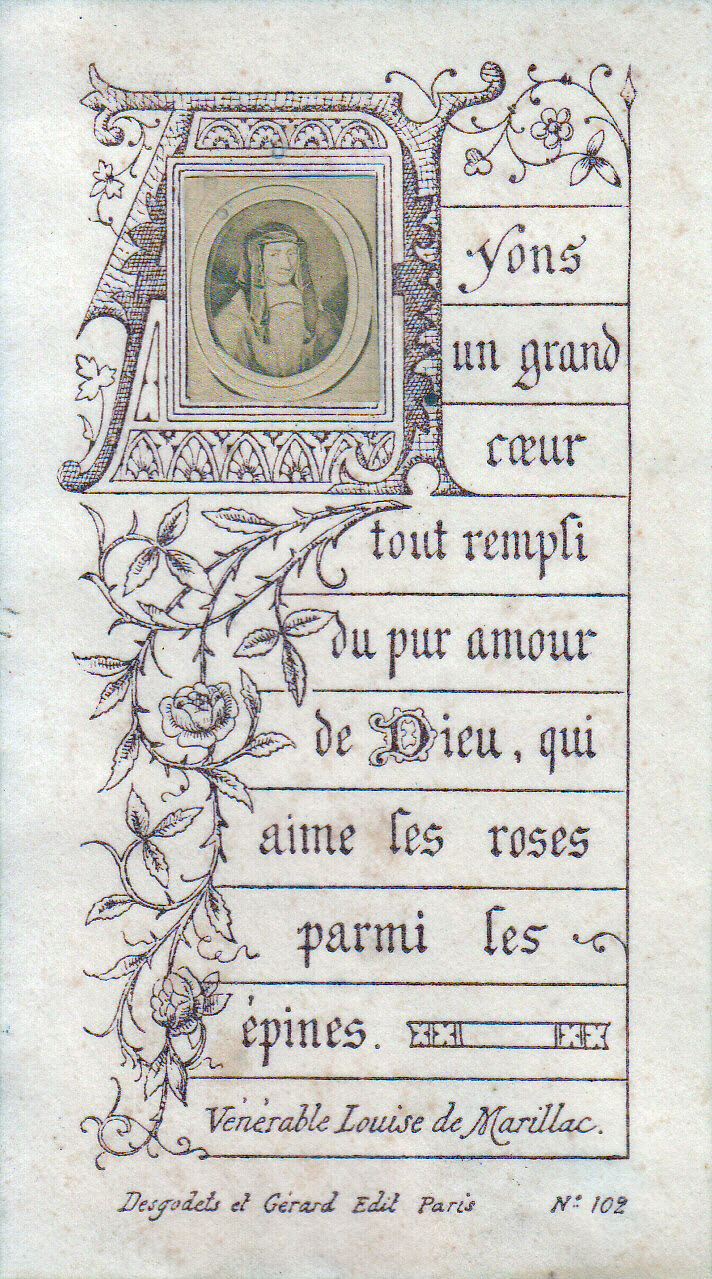 Ayons
un grand
cœur
tout rempli
du pur amour
de Dieu, qui
aime les roses
parmi les
épines.
Vénérable Louise de Marillac.
Desgodets et Gérard Edit Paris Nº 102